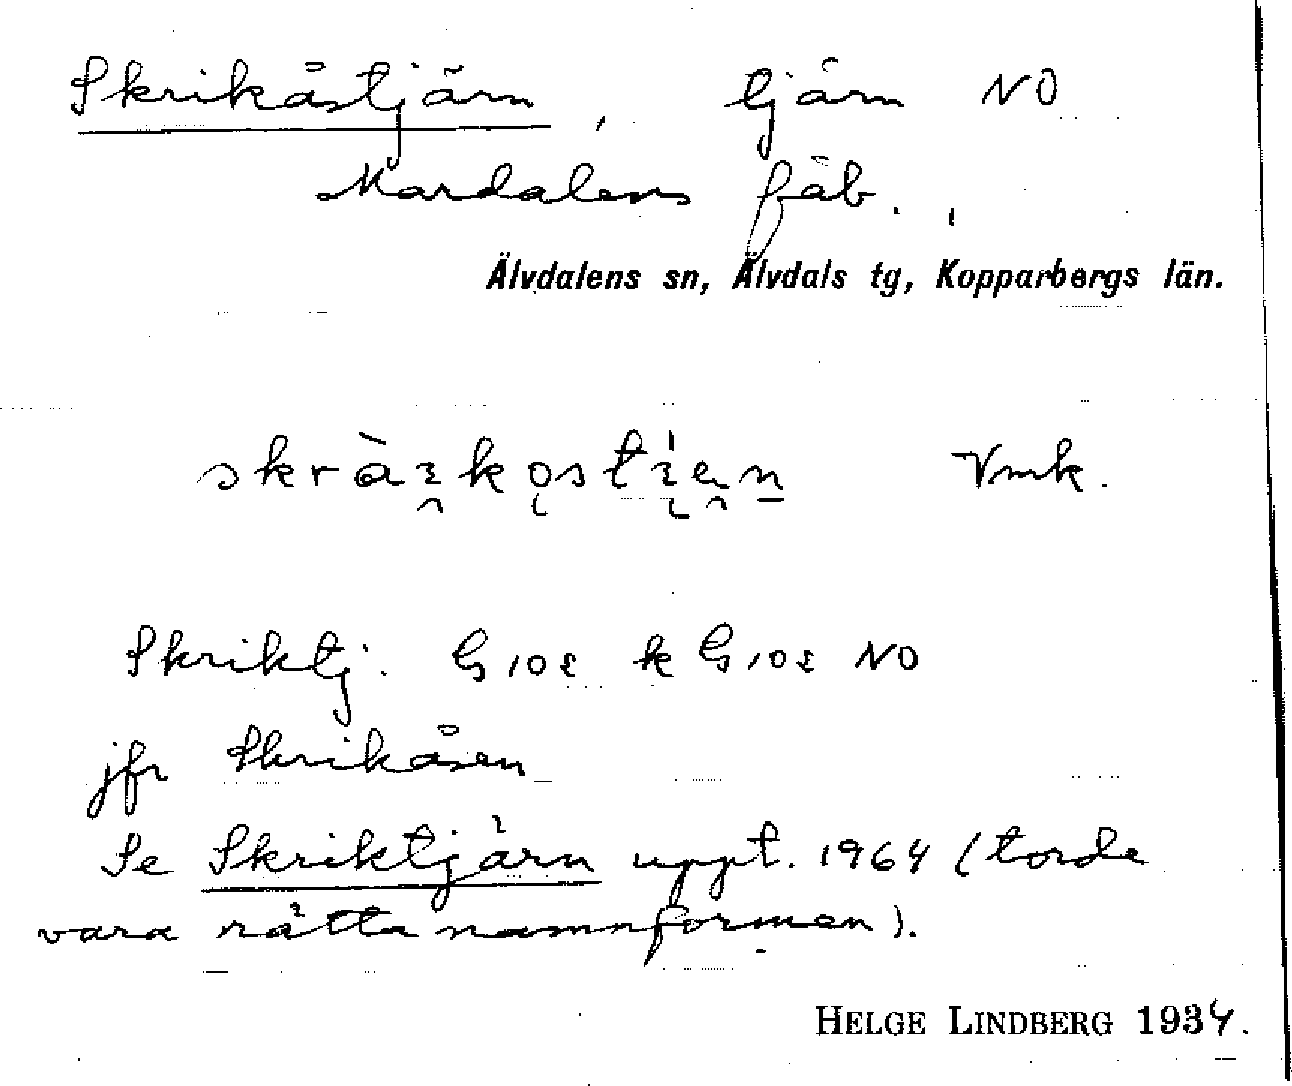 Skrikåstjärn, tjärn NO
Mardalens fäb.,
Älvdalens sn, Älvdals tg, Kopparbergs län.
Vmk.
Skriktj. G 102 k G 102 NO
jfr Skrikåsen
Se Skriktjärn uppt. 1964 (torde
vara rätta namnformen).
HELGE LINDBERG 1934.